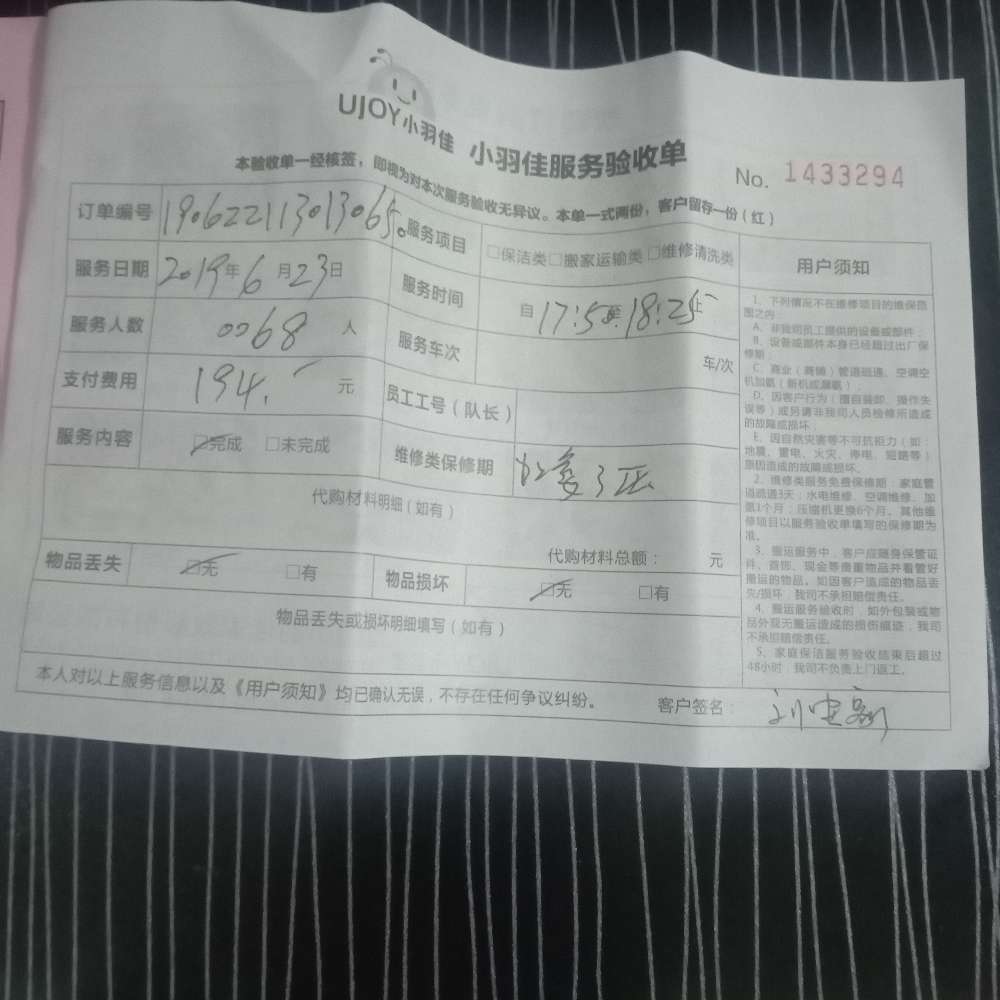 UJOY小羽佳 小羽佳服务验收单
No. 1433294
本验收单一经核签，即视为对本次服务验收无异议。本单一式两份，客户留存一份（红）
订单编号 19062211301306
服务项目 □保洁类□搬家运输类□维修清洗类
服务日期 2019年6月23日
服务时间 自17:50至18:25止
服务人数 0068人
服务车次 车/次
支付费用 194.元
员工工号（队长）
服务内容 □完成 □未完成
维修类保修期
代购材料明细（如有）
代购材料总额： 元
物品丢失 □无 □有
物品损坏 □无 □有
物品丢失或损坏明细填写（如有）
本人对以上服务信息以及《用户须知》均已确认无误，不存在任何争议纠纷。
客户签名：
用户须知
1、下列情况不在维修项目的维保范
围之内：
A、非我司员工提供的设备或部件；
B、设备或部件本身已经超过出厂保
修期；
C、商业（商铺）管道疏通、空调空
机加氨（新机或漏氨）；
D、因客户行为（擅自装卸、操作失
误等）或另请非我司人员检修所造成
的故障或损坏；
E、因自然灾害等不可抗拒力（如：
地震、雷电、火灾、停电、短路等）
原因造成的故障或损坏。
2、维修类服务免费保修期：家庭管
道疏通3天；水电维修、空调维修、加
氨1个月；压缩机更换6个月。其他维
修项目以服务验收单填写的保修期为
准。
3、搬运服务中，客户应随身保管证
件、首饰、现金等贵重物品并看管好
搬运的物品。如因客户造成的物品丢
失/损坏，我司不承担赔偿责任。
4、搬运服务验收时，如外包装或物
品外观无搬运造成的损伤痕迹，我司
不承担赔偿责任。
5、家庭保洁服务验收结束后超过
48小时，我司不负责上门返工。